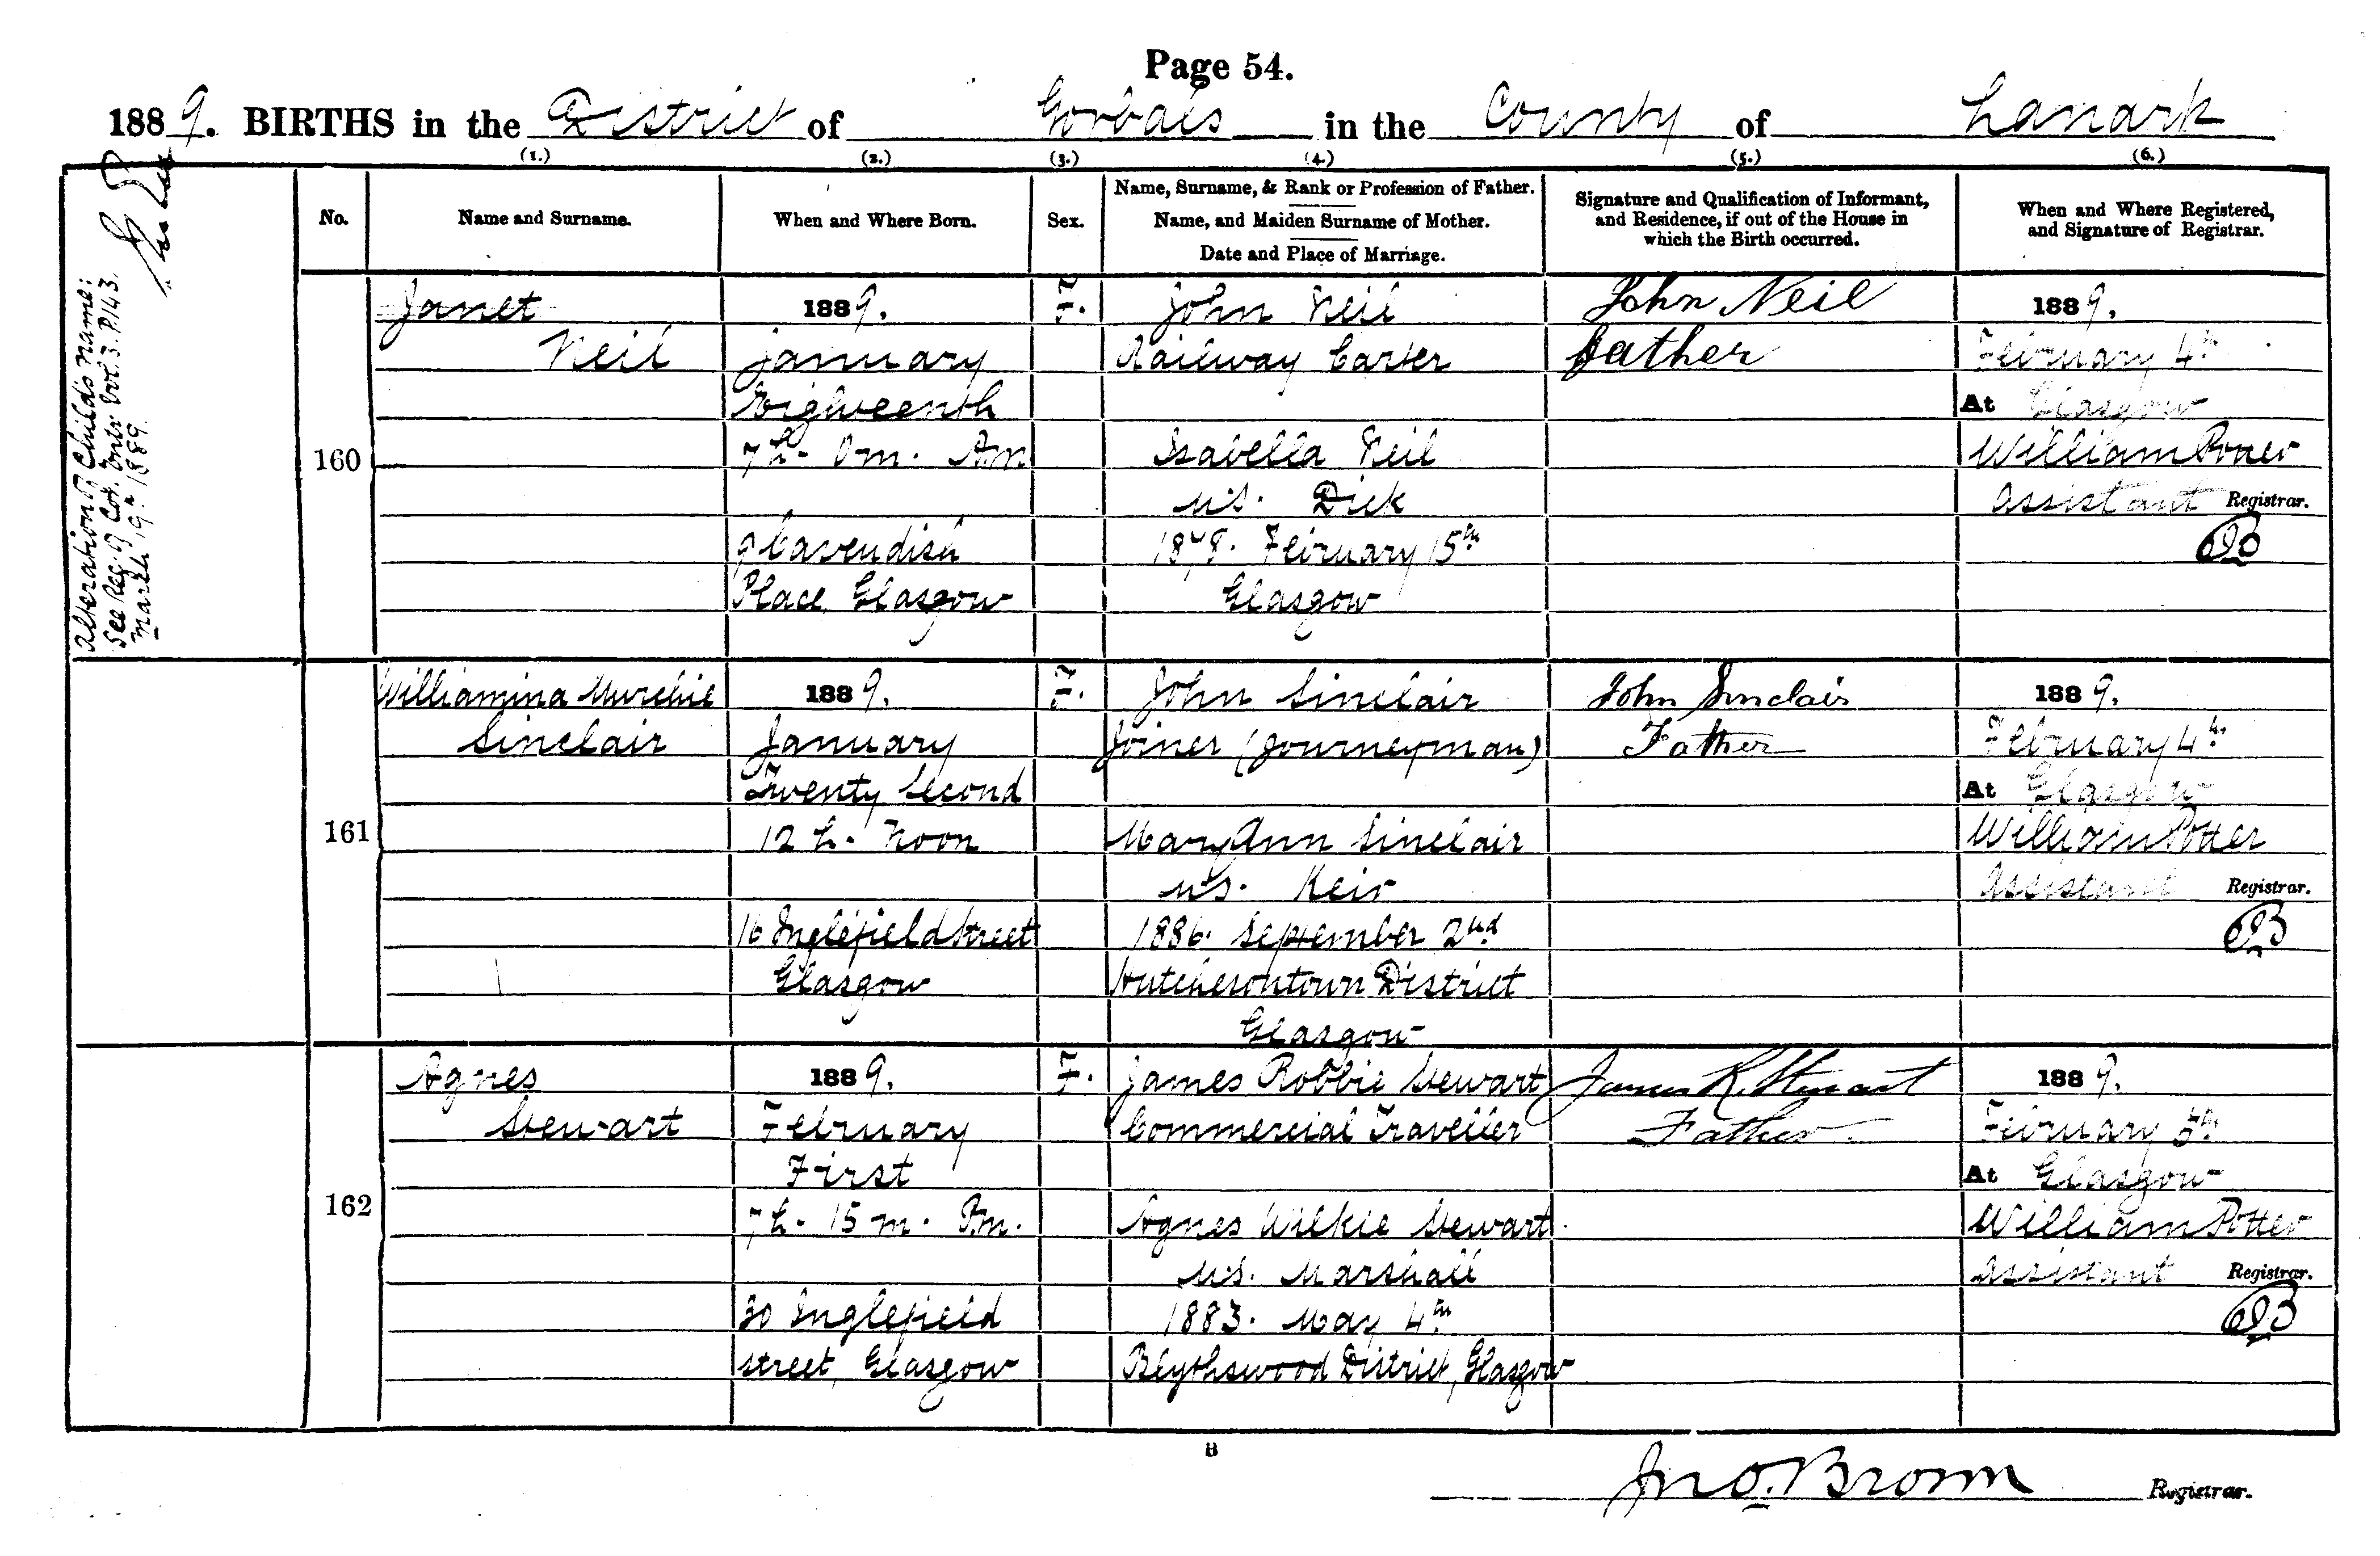 Page 54.
1889. BIRTHS in the District of Gorbals in the County of Lanark
(1.) (2.) (3.) (4.) (5.) (6.)
No.
Name and Surname.
When and Where Born.
Sex.
Name, Surname, & Rank or Profession of Father.
Name, and Maiden Surname of Mother.
Date and Place of Marriage.
Signature and Qualification of Informant,
and Residence, if out of the House in
which the Birth occurred.
When and Where Registered,
and Signature of Registrar.
Alteration of Child's name:
See Reg. of Cor. Entr. Vol. 3. P. 143.
March 19th 1889.
160
Janet
Neil
1889.
January
Eighteenth
7h. 0m. Am
9 Cavendish
Place, Glasgow
F.
John Neil
Railway Carter
Isabella Neil
M.S. Dick
1878. February 15th
Glasgow
John Neil
Father
1889.
February 4th
At Glasgow
William Potter
Assistant Registrar.
161
Williamina Murchie
Sinclair
1889.
January
Twenty Second
12 h. Noon
16 Inglefield Street
Glasgow
F.
John Sinclair
Joiner (Journeyman)
Mary Ann Sinclair
M.S. Keir
1886. September 2nd
Hutchesontown District
Glasgow
John Sinclair
Father
1889.
February 4th
At Glasgow
William Potter
Assistant Registrar.
162
Agnes
Stewart
1889.
February
First
7h. 15 m. P.m.
30 Inglefield
Street, Glasgow
F.
James Robbie Stewart
Commercial Traveller
Agnes Wilkie Stewart
M.S. Marshall
1883. May 4th
Blythswood District, Glasgow
James R. Stewart
Father
1889.
February 5th
At Glasgow
William Potter
Assistant Registrar.
B
Jno. Brown Registrar.